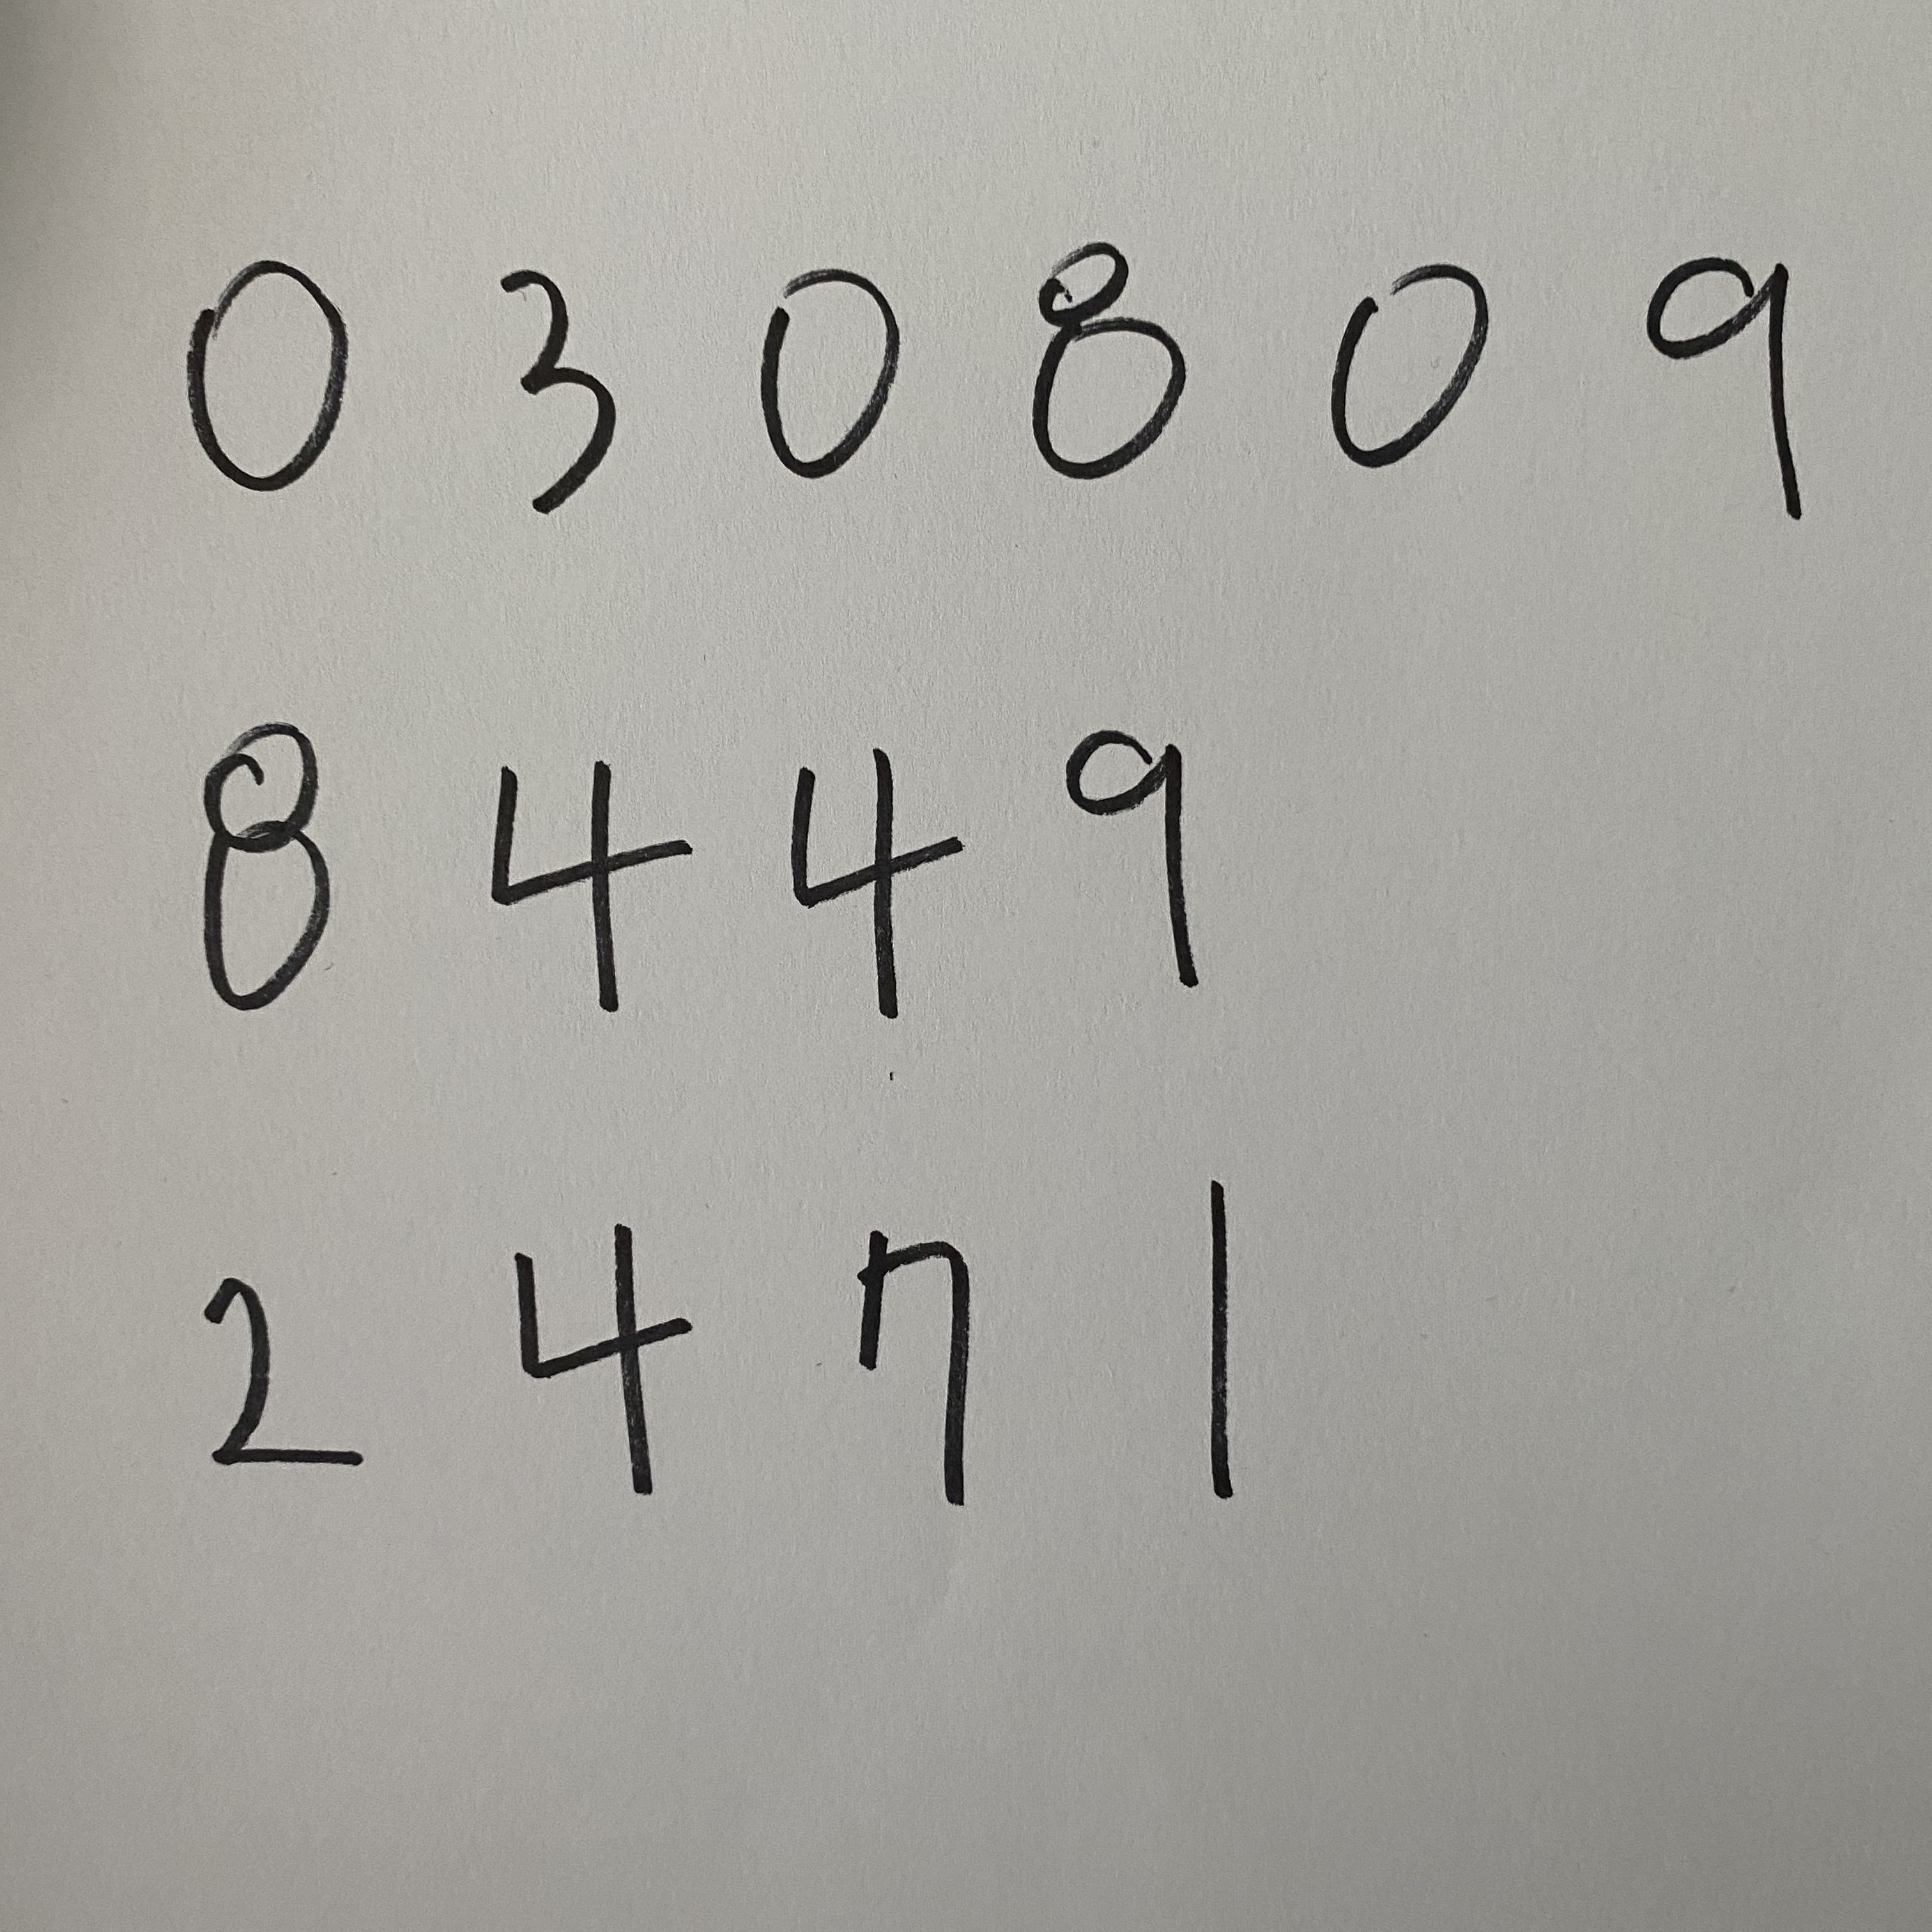 0 3 0 8 0 9
8 4 4 9
2 4 7 1